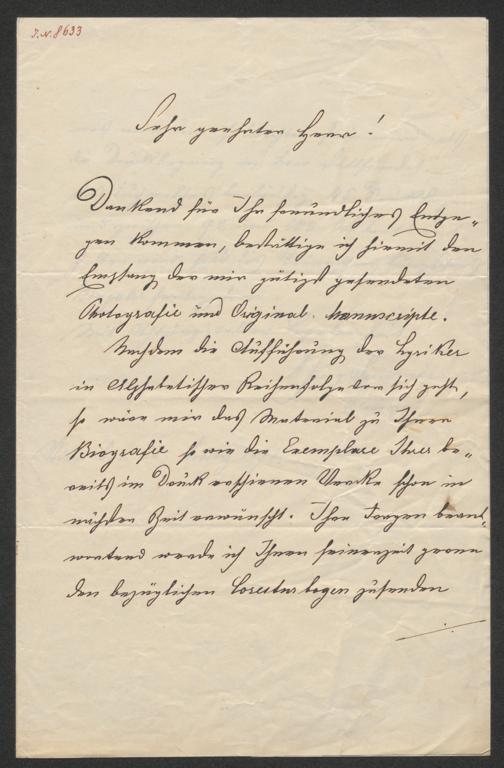 I. N. 8633
Sehr geehrter Herr!
Dankend für Ihr freundliches Entge-
gen kommen, bestättige ich hiermit den
Empfang der mir gütigst gesendeten
Photografie und Original-Manuscripte.
Nachdem die Aufführung der Lyriker
in Alphabetischer Reihenfolge vor sich geht,
so wäre mir das Material zu Ihrer
Biografie so wie die Exemplare Ihrer be-
reits im Druck erschienen Werke schon in
nächster Zeit erwünscht. Ihre Fragen beant-
wortend werde ich Ihnen seinerzeit gerne
den bezüglichen Corecturbogen zusenden